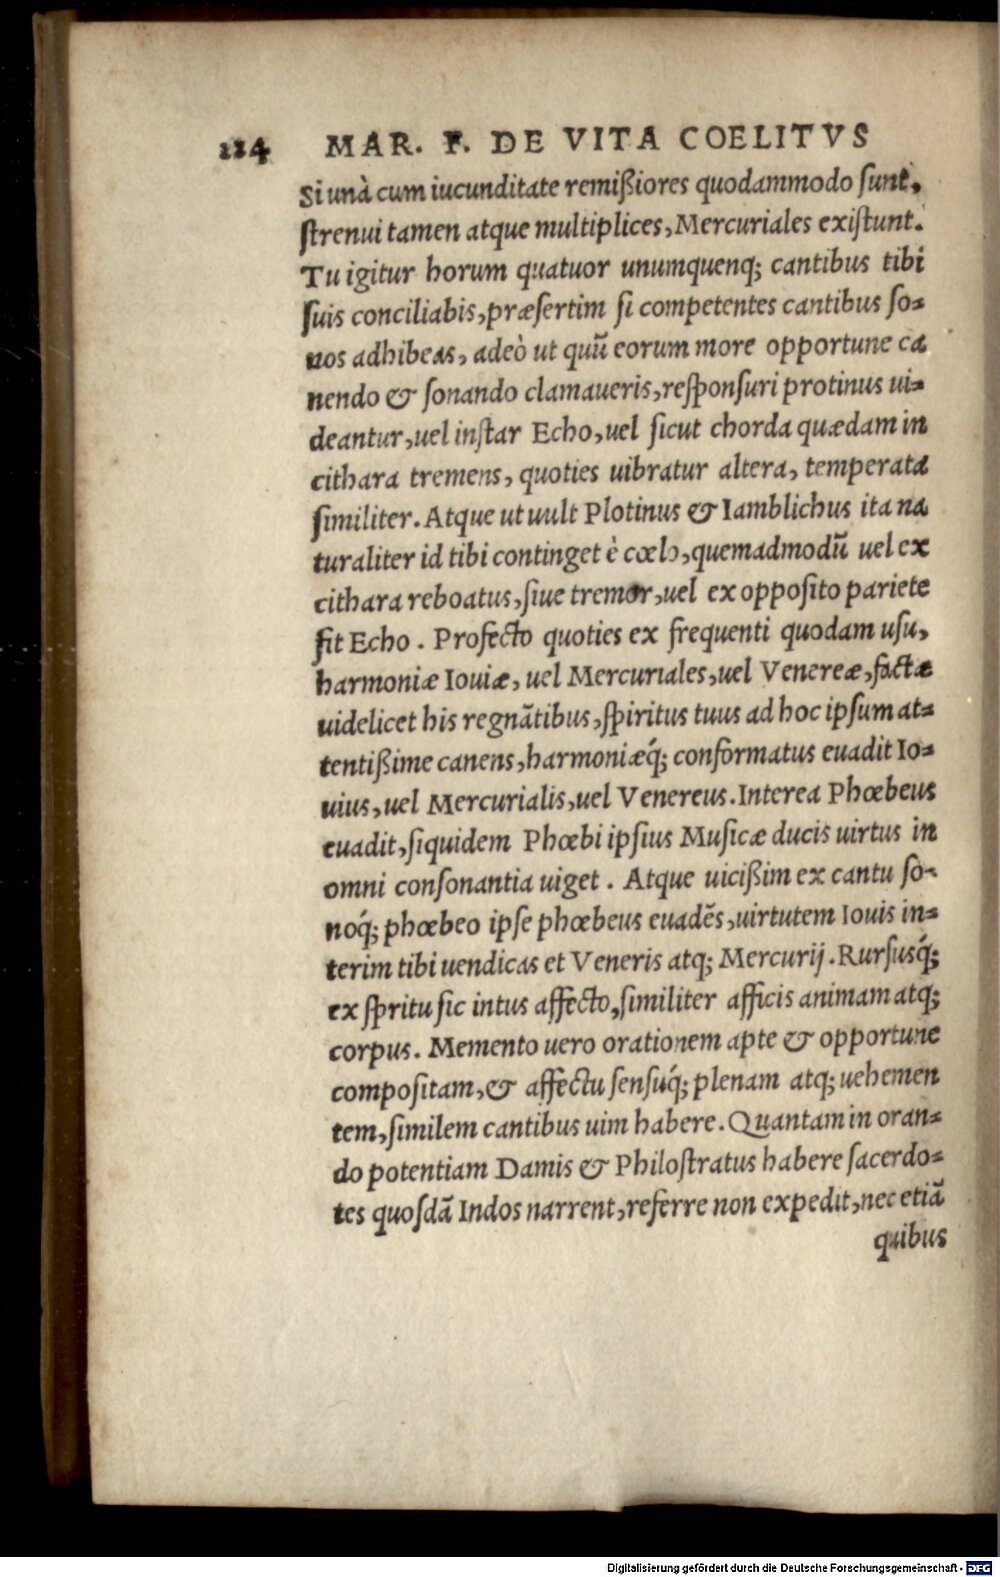 124 MAR. F. DE VITA COELITVS
Si unà cum iucunditate remißiores quodammodo sunt,
ſtrenui tamen atque multiplices, Mercuriales exiſtunt.
Tu igitur horum quatuor unumquenq; cantibus tibi
ſuis conciliabis, præſertim ſi competentes cantibus ſo-
nos adhibeas, adeò ut quū eorum more opportune ca
nendo & ſonando clamaueris, reſponſuri protinus ui-
deantur, uel inſtar Echo, uel ſicut chorda quædam in
cithara tremens, quoties uibratur altera, temperata
ſimiliter. Atque ut uult Plotinus & Iamblichus ita na
turaliter id tibi continget è cœlo, quemadmodū uel ex
cithara reboatus, ſiue tremor, uel ex oppoſito pariete
fit Echo. Profecto quoties ex frequenti quodam uſu,
harmoniæ Iouiæ, uel Mercuriales, uel Venereæ, factæ
uidelicet his regnātibus, ſpiritus tuus ad hoc ipſum at-
tentißime canens, harmoniæq́; conformatus euadit Io-
uius, uel Mercurialis, uel Venereus. Interea Phœbeus
euadit, ſiquidem Phœbi ipſius Muſicæ ducis uirtus in
omni conſonantia uiget. Atque uicißim ex cantu ſo-
noq́; phœbeo ipſe phœbeus euadēs, uirtutem Iouis in-
terim tibi uendicas et Veneris atq; Mercurij. Rurſusq́;
ex ſpritu ſic intus affecto, ſimiliter afficis animam atq;
corpus. Memento uero orationem apte & opportune
compoſitam, & affectu ſenſuq́; plenam atq; uehemen
tem, ſimilem cantibus uim habere. Quantam in oran-
do potentiam Damis & Philoſtratus habere ſacerdo-
tes quoſdā Indos narrent, referre non expedit, nec etiā
quibus
Digitalisierung gefördert durch die Deutsche Forschungsgemeinschaft - DFG